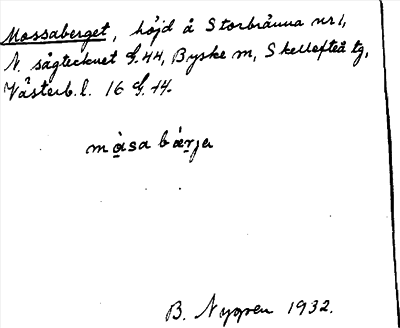 Mossaberget, höjd å Storbrånna nr 1,
N. sågtecknet S. 44, Byske sn, Skellefteå tg,
Västerb. l. 16 S. 14.
måsa bærja
B. Nygren 1932.